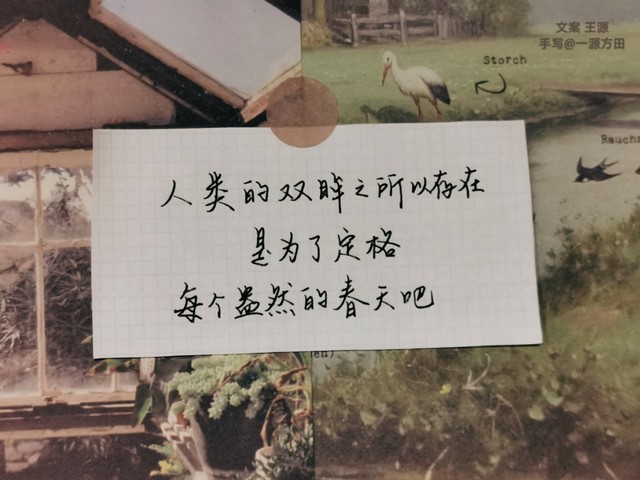 文案 王源
手写@一源方田
Storch
Rauchs
人类的双眸之所以存在
是为了定格
每个盎然的春天吧
en)